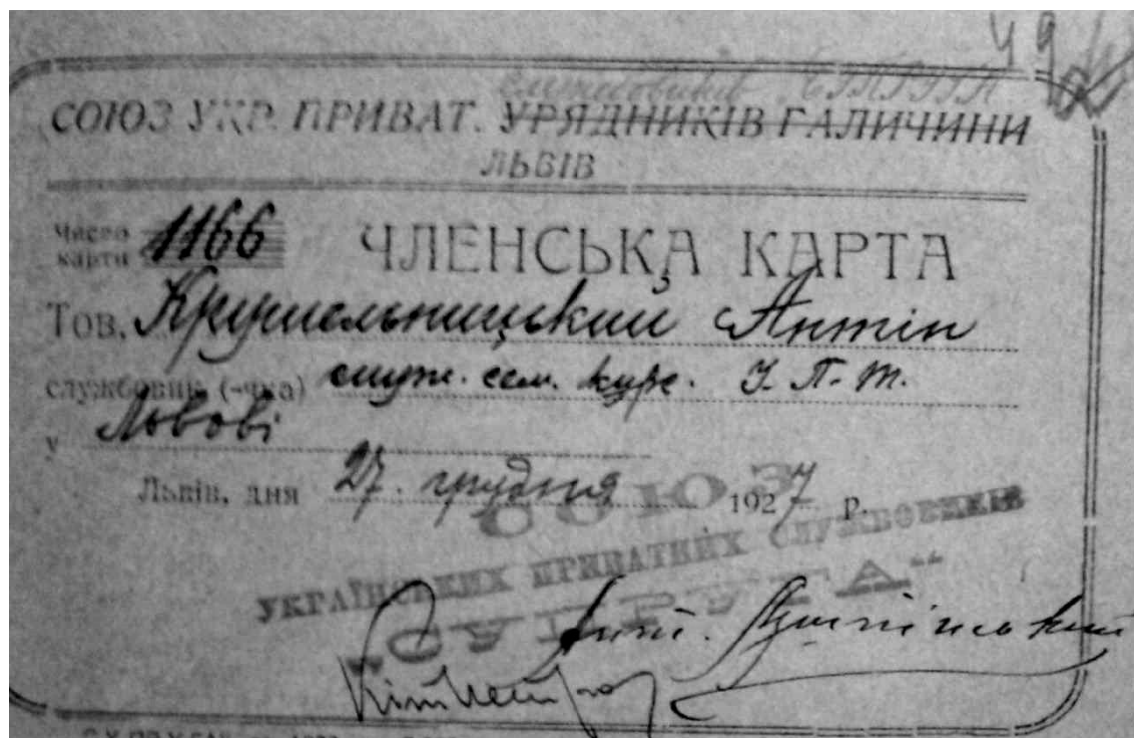 49
службовиків
СОЮЗ УКР. ПРИВАТ. УРЯДНИКІВ ГАЛИЧИНИ
ЛЬВІВ
Число
карти 1166
ЧЛЕНСЬКА КАРТА
Тов. Крушельницький Антін
службовик (-чка) служ. сем. курс. У. П. Т.
у Львові
Львів, дня 27. грудня 1927 р.
СОЮЗ
УКРАЇНСЬКИХ ПРИВАТНИХ СЛУЖБОВИКІВ
„СУПРУГА“